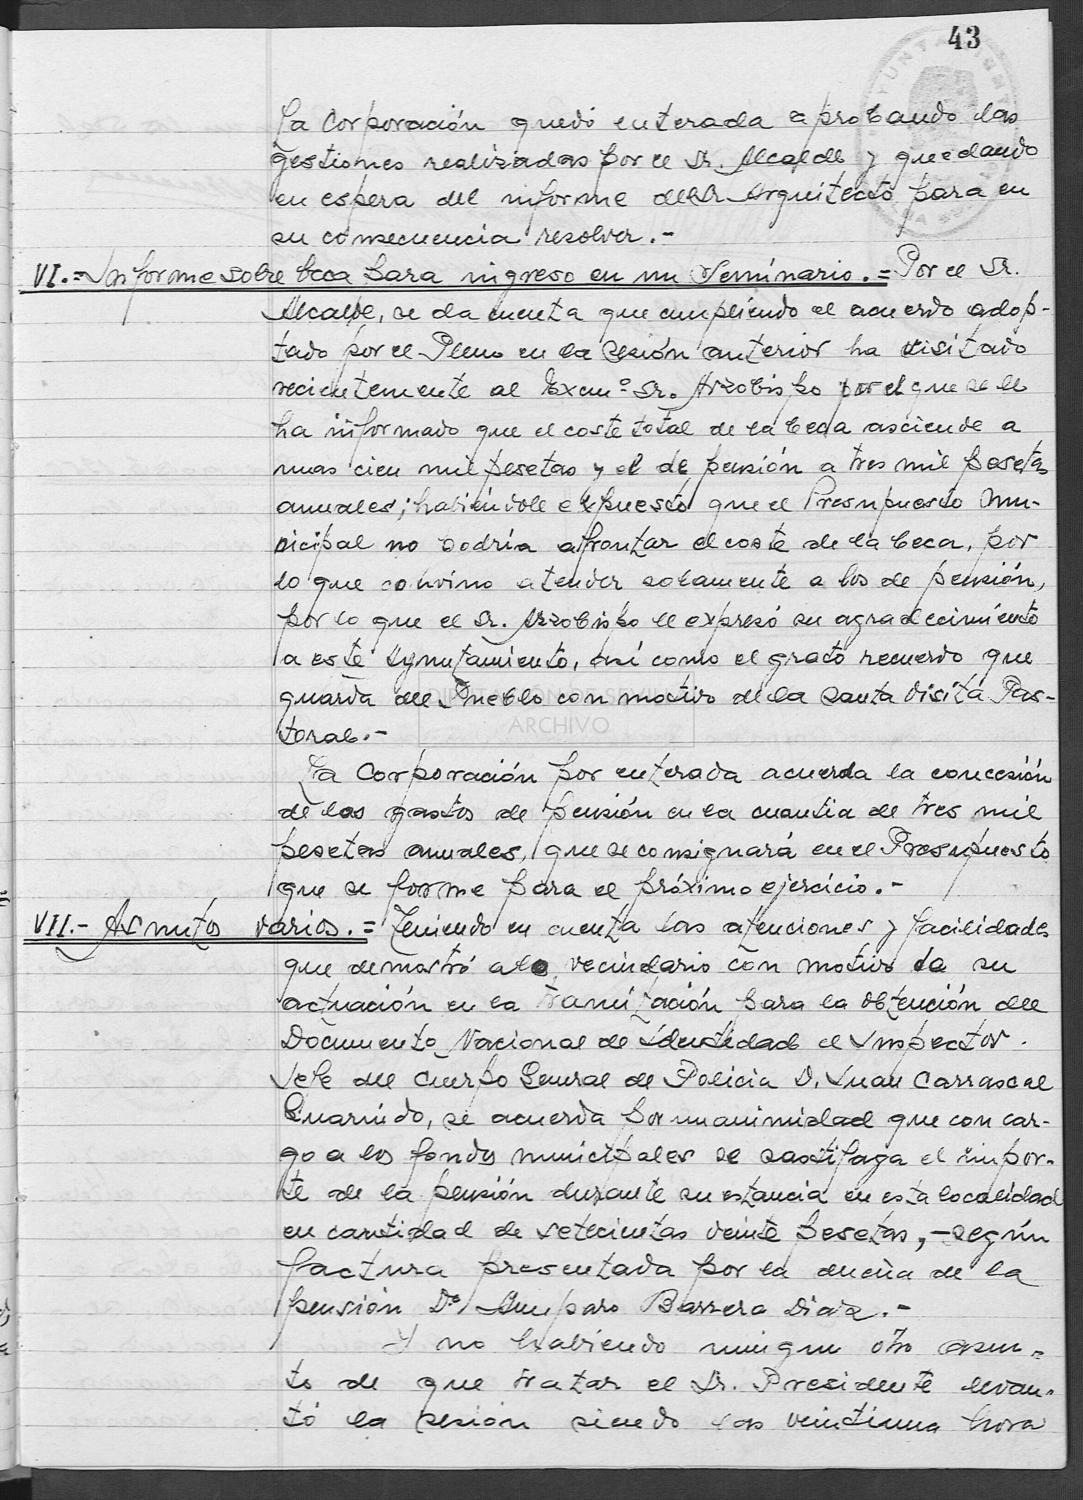 43
La Corporación quedó enterada aprobando las
gestiones realizadas por el Sr. Alcalde y quedando
en espera del informe del Sr. Arquitecto para en
su consecuencia resolver.-
VI.= Informe sobre beca para ingreso en un Seminario.= Por el Sr.
Alcalde, se da cuenta que cumpliendo el acuerdo adop-
tado por el Pleno en la sesión anterior ha visitado
recientemente al Excmº Sr. Arzobispo por el que se le
ha informado que el coste total de la beca asciende a
unas cien mil pesetas y el de pensión a tres mil pesetas
anuales; habiéndole expuesto que el Presupuesto Mu-
nicipal no podría afrontar el coste de la beca, por
lo que convino atender solamente a los de pensión,
por lo que el Sr. Arzobispo le expresó su agradecimiento
a este Ayuntamiento, así como el grato recuerdo que
guarda del Pueblo con motivo de la Santa Visita Pas-
toral.-
DIPUTACIÓN DE SEVILLA
ARCHIVO
La Corporación por enterada acuerda la concesión
de los gastos de pensión en la cuantia de tres mil
pesetas anuales, que se consignará en el Presupuesto
que se forme para el próximo ejercicio.-
VII.- Asuntos varios.= Teniendo en cuenta las atenciones y facilidades
que demostró al vecindario con motivo de su
actuación en la tramitación para la obtención del
Documento Nacional de Identidad el Inspector
Jefe del Cuerpo General de Policia D. Juan Carrascal
Guarnido, se acuerda por unanimidad que con car-
go a los fondos municipales se sastifaga el impor-
te de la pensión durante su estancia en esta localidad
en cantidad de setecientas veinte pesetas,- según
factura presentada por la dueña de la
pensión Dª Amparo Barrera Diaz.-
Y no habiendo ningun otro asun-
to de que tratar el Sr. Presidente levan-
tó la sesión siendo las veintiuna hora